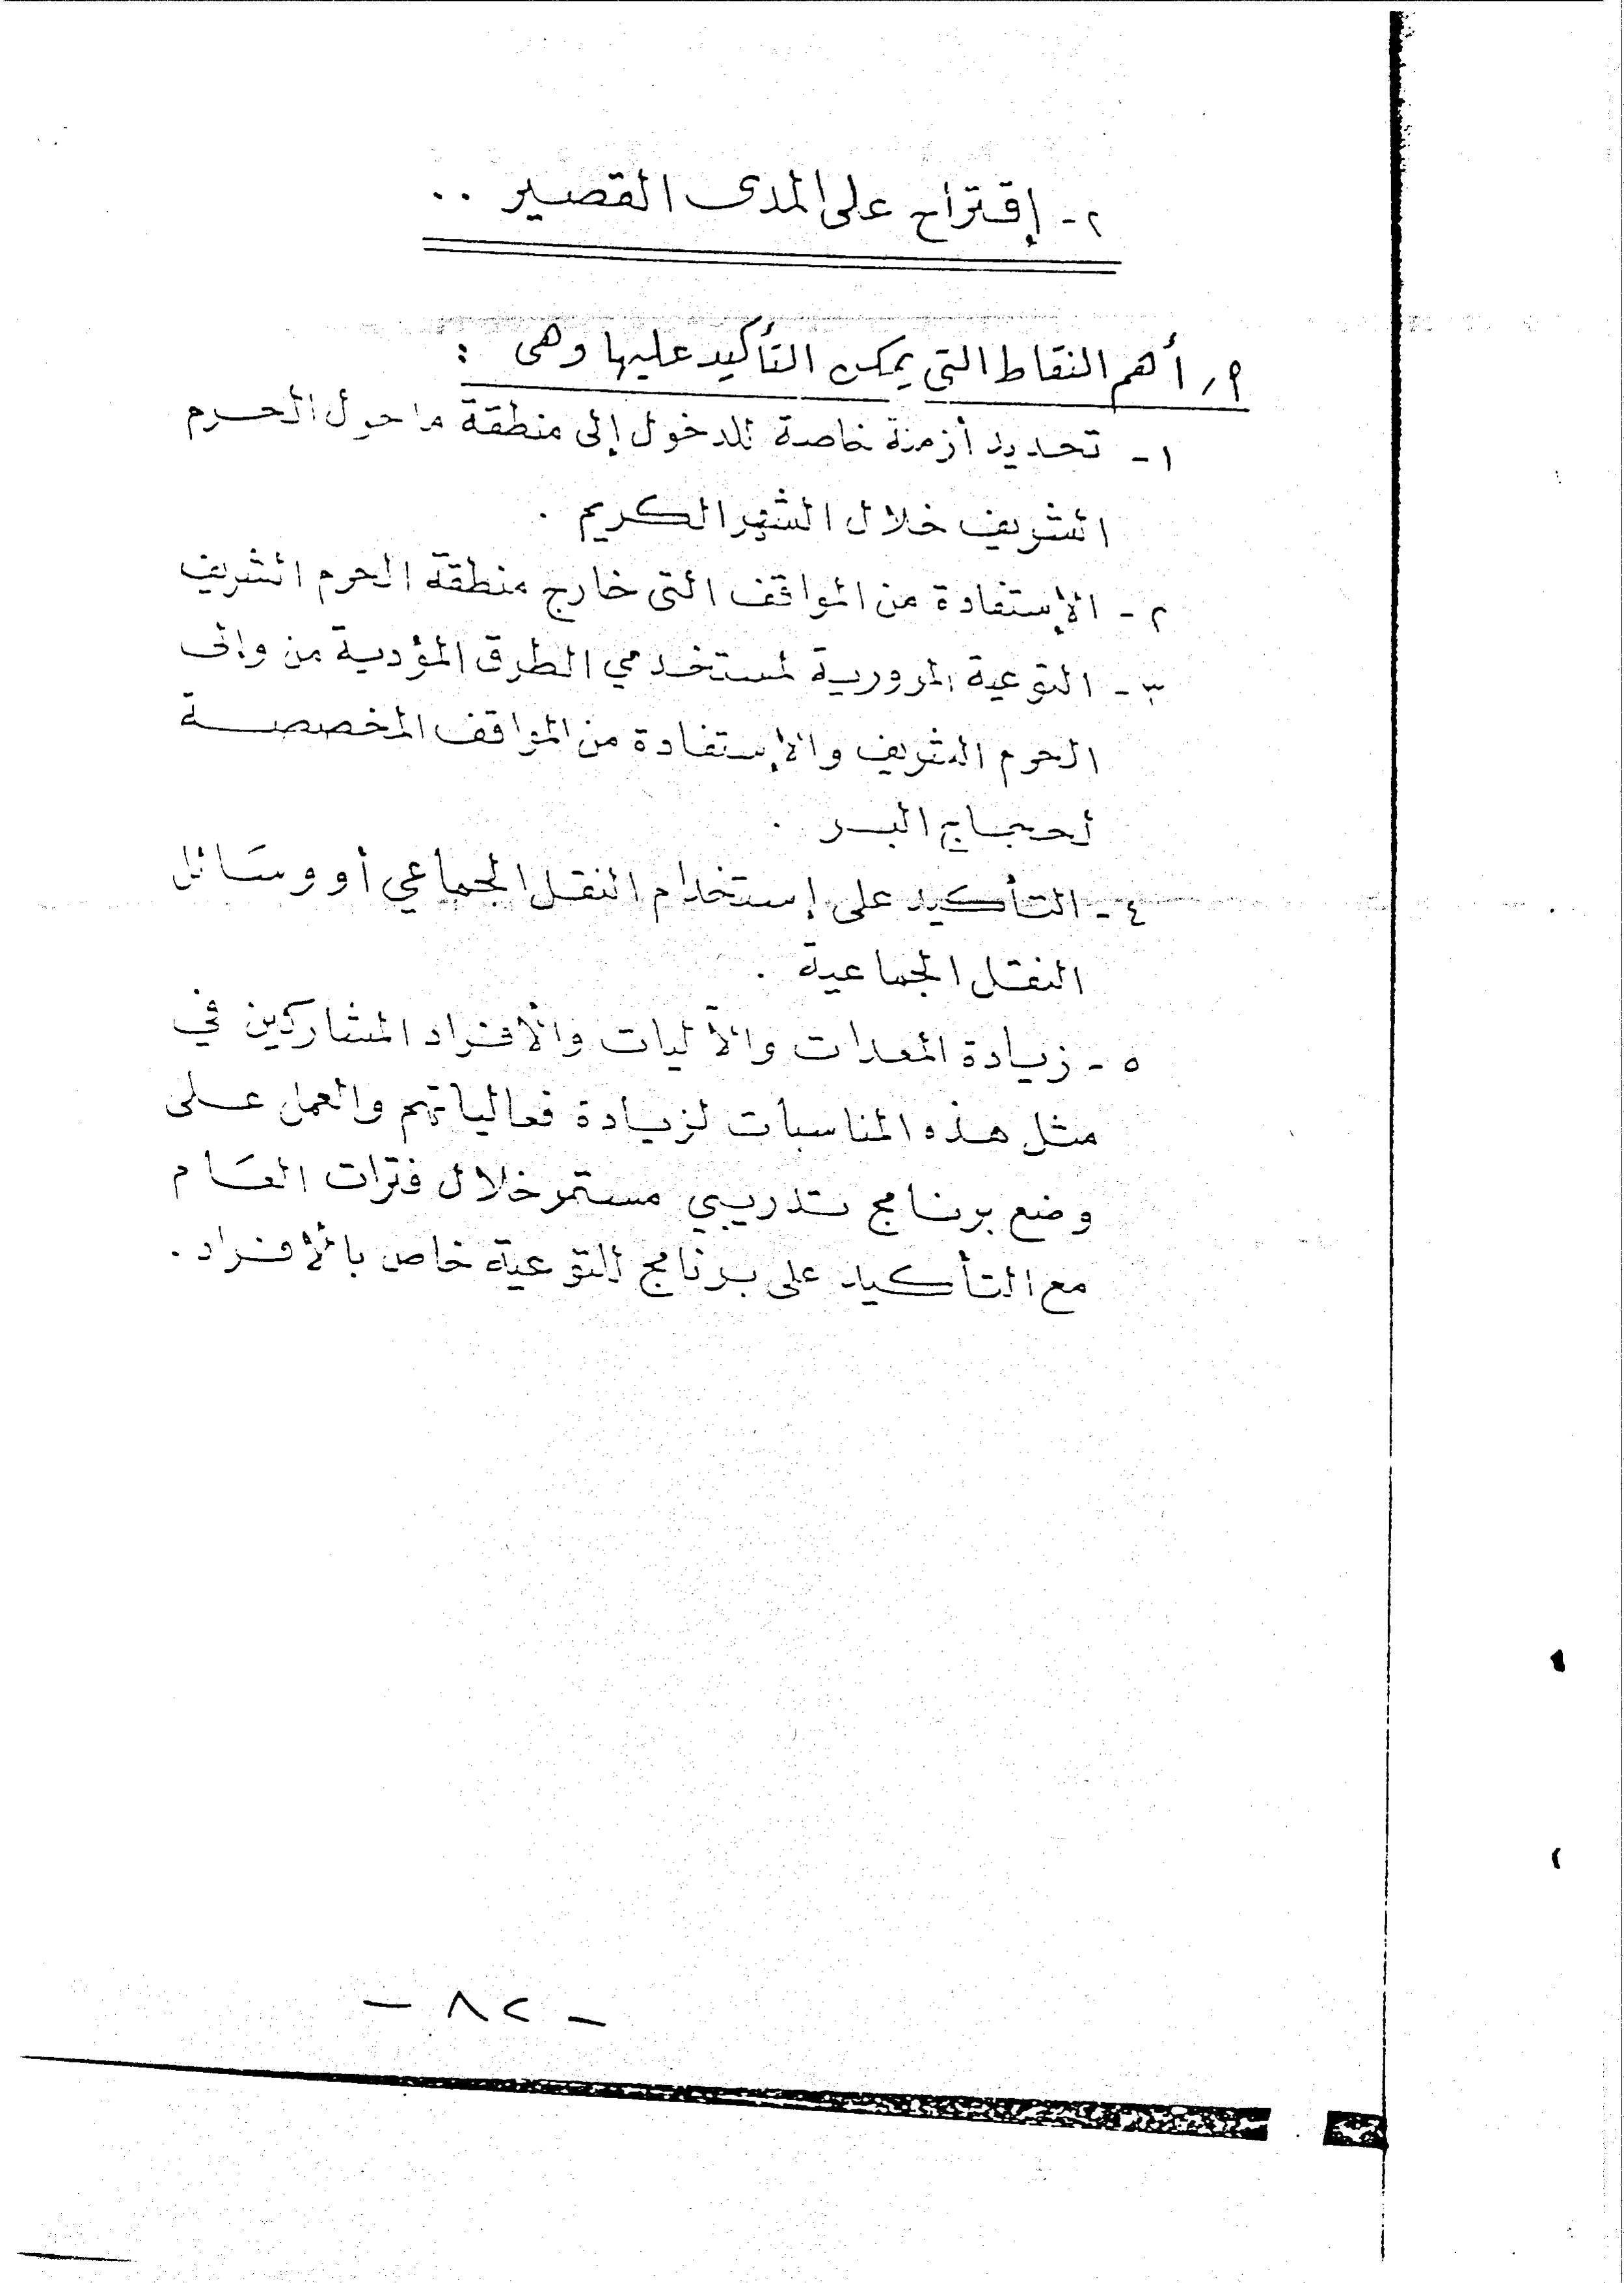 ٢- إقتراح على المدى القصير ..
٩/ أهم النقاط التي يمكن التأكيد عليها وهى :
١- تحديد أزمنة خاصة للدخول إلى منطقة ما حول الحرم
الشريف خلال الشهر الكريم .
٢- الإستفادة من المواقف التى خارج منطقة الحرم الشريف
٣- التوعية المرورية لمستخدمي الطرق المؤدية من وإلى
الحرم الشريف والإستفادة من المواقف المخصصة
لحجاج البر .
٤- التأكيد على إستخدام النقل الجماعي أو وسائل
النقل الجماعية .
٥- زيادة المعدات والآليات والأفراد المشاركين في
مثل هذه المناسبات لزيادة فعالياتهم والعمل على
وضع برنامج تدريبي مستمر خلال فترات العام
مع التأكيد على برنامج للتوعية خاص بالأفراد .
- ٨٢ -